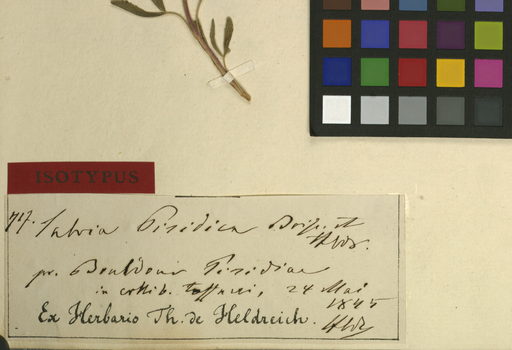 ISOTYPUS
717. Salvia Pisidica Boiss. et
Hldr.
pr. Bouldour Pisidiae
in collib. 24 Mai
1845
Ex Herbario Th. de Heldreich. Hldr